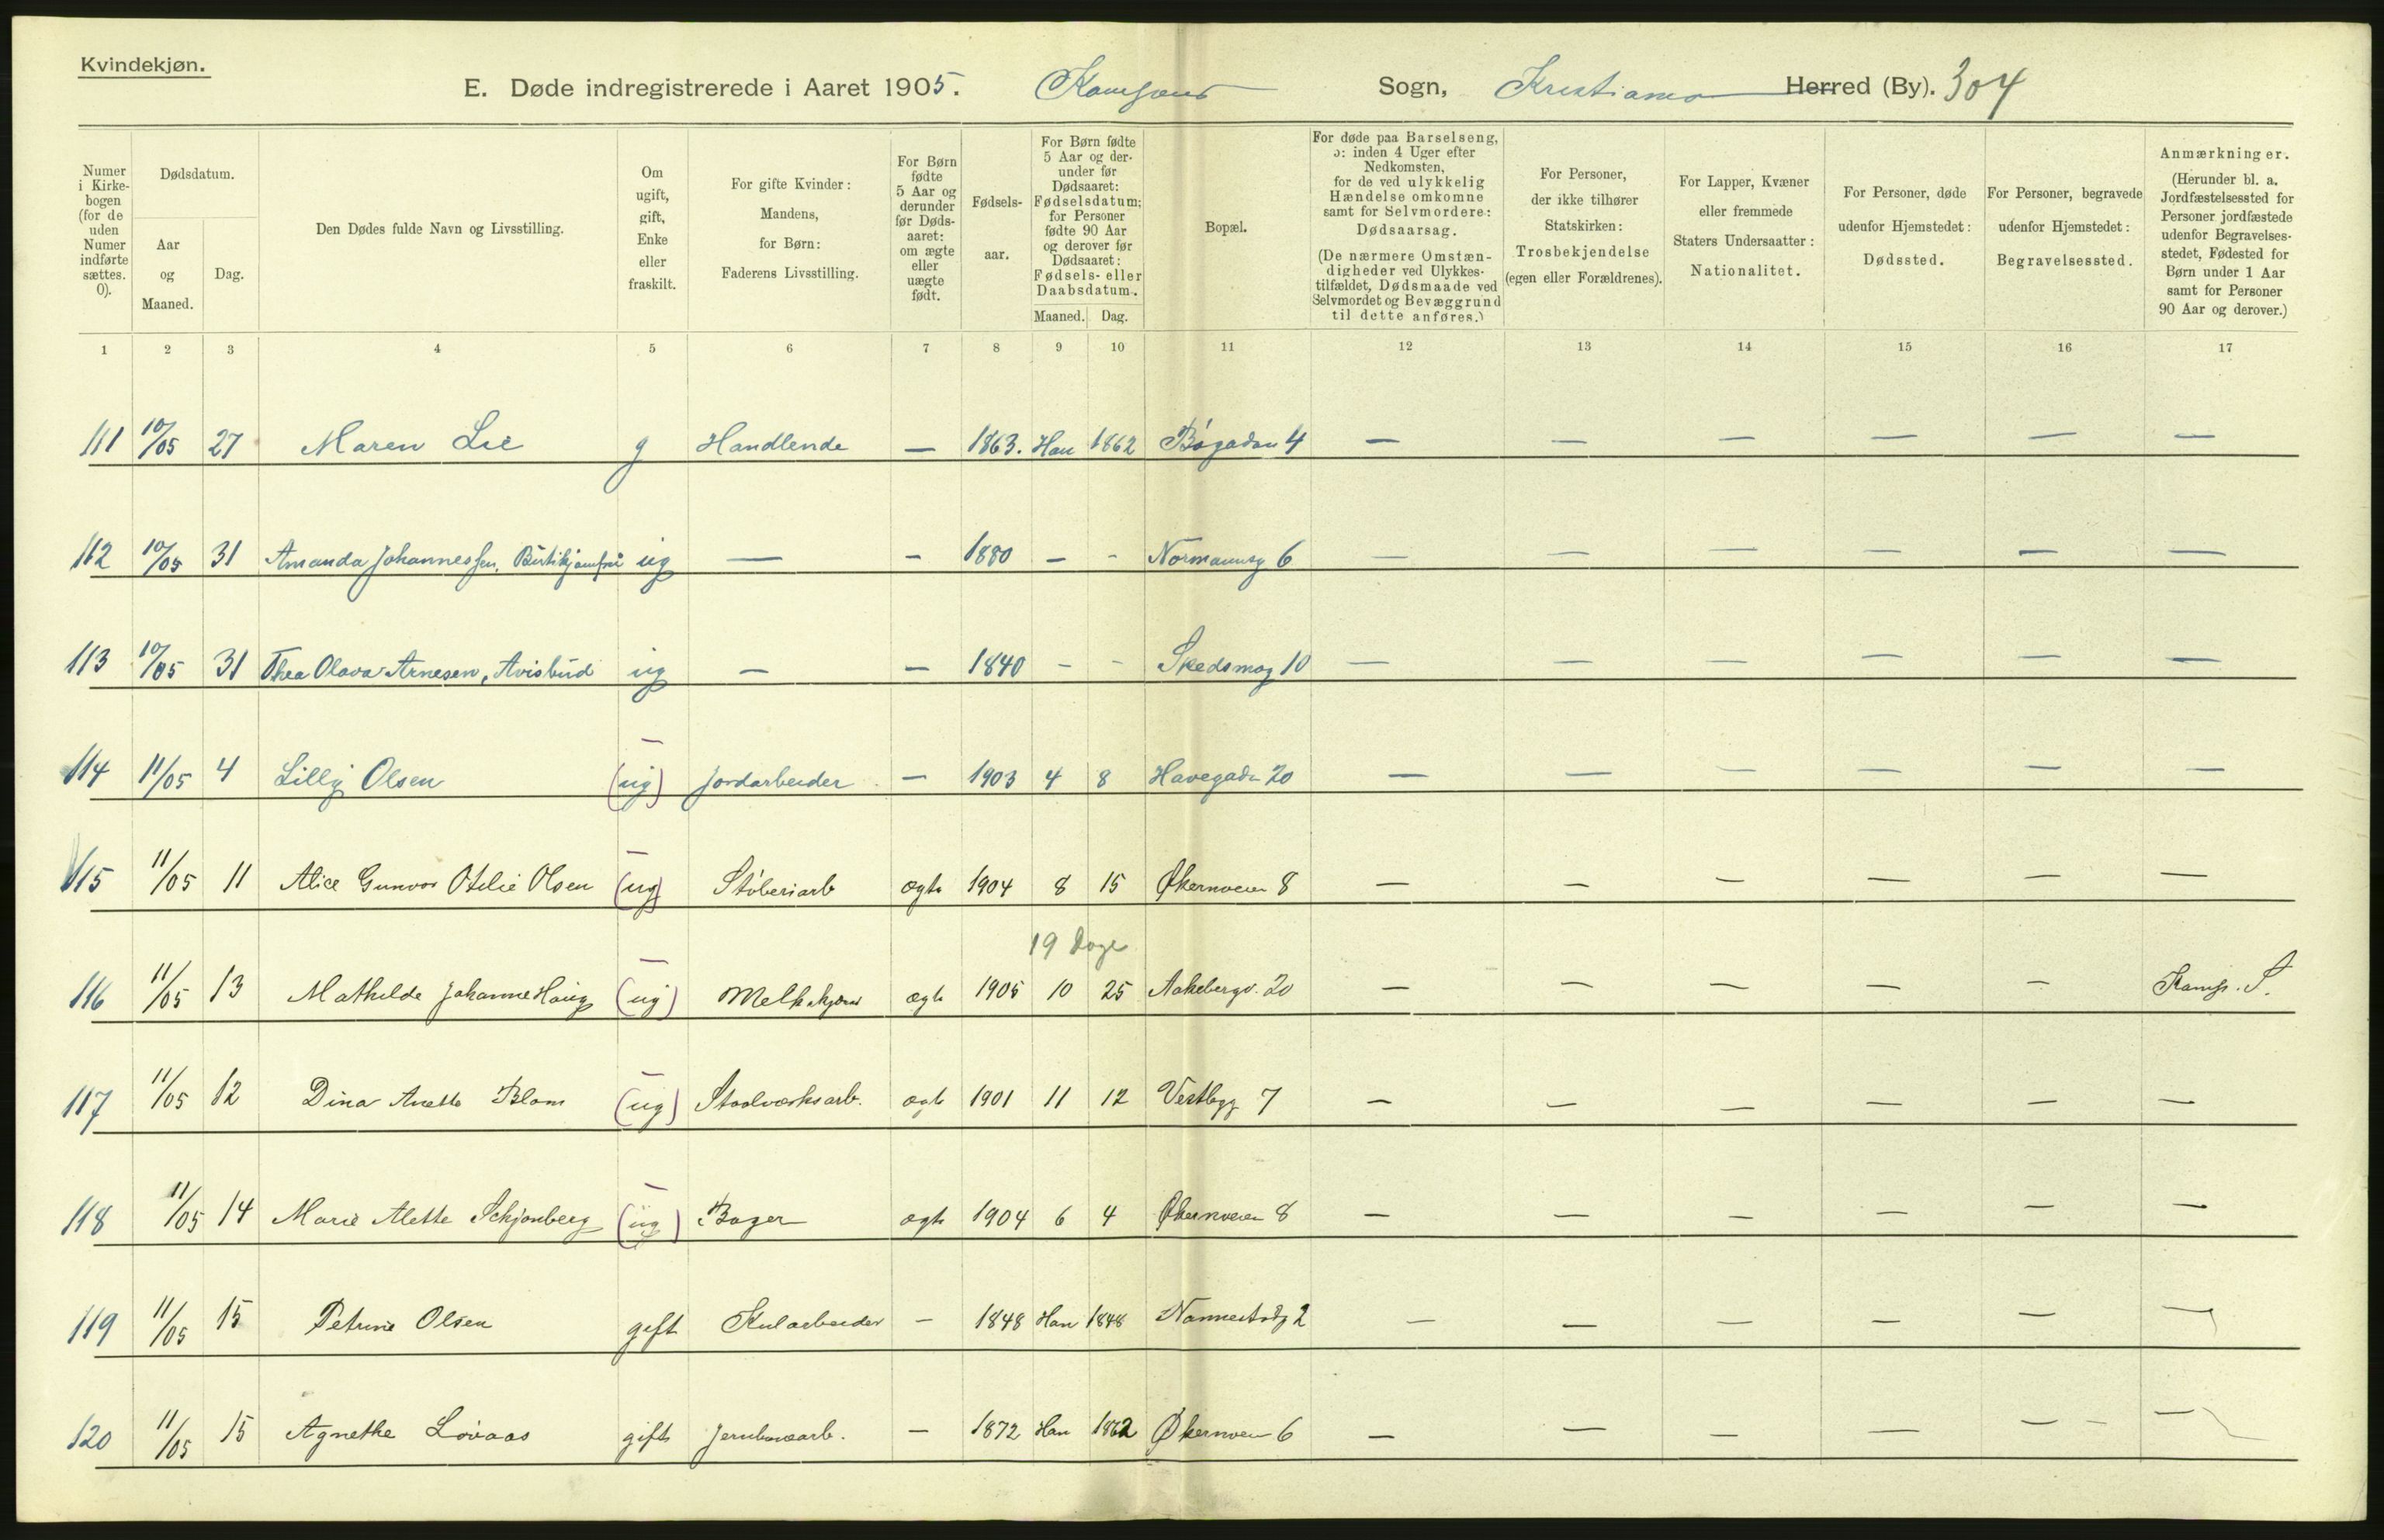 Kvindekjøn.
E. Døde indregistrerede i Aaret 1905. Kampens Sogn, Kristiania Herred (By). 304
Numer i Kirkebogen (for de uden Numer indførte sættes. 0).
Dødsdatum.
Aar og Maaned.
Dag.
Den Dødes fulde Navn og Livsstilling.
Om ugift, gift, Enke eller fraskilt.
For gifte Kvinder: Mandens, for Børn: Faderens Livsstilling.
For Børn fødte 5 Aar og derunder før Dødsaaret: om ægte eller uægte født.
Fødselsaar.
For Børn fødte 5 Aar og derunder før Dødsaaret: Fødselsdatum; for Personer fødte 90 Aar og derover før Dødsaaret: Fødsels- eller Daabsdatum.
Maaned. Dag.
Bopæl.
For døde paa Barselseng, ɔ: inden 4 Uger efter Nedkomsten, for de ved ulykkelig Hændelse omkomne samt for Selvmordere: Dødsaarsag.
(De nærmere Omstændigheder ved Ulykkestilfældet, Dødsmaade ved Selvmordet og Bevæggrund til dette anføres.)
For Personer, der ikke tilhører Statskirken: Trosbekjendelse (egen eller Forældrenes).
For Lapper, Kvæner eller fremmede Staters Undersaatter: Nationalitet.
For Personer, døde udenfor Hjemstedet: Dødssted.
For Personer, begravede udenfor Hjemstedet: Begravelsessted.
Anmærkninger. (Herunder bl. a. Jordfæstelsessted for Personer jordfæstede udenfor Begravelsesstedet, Fødested for Børn under 1 Aar samt for Personer 90 Aar og derover.)
1 2 3 4 5 6 7 8 9 10 11 12 13 14 15 16 17
111 10/05 27 Maren Lie g Handlende — 1863. Han 1862 Bøgaden 4 — — — — — —
112 10/05 31 Amanda Johannessen, Butikjomfru ug — — 1880 — - Normannsg 6 — — — — — —
113 10/05 31 Thea Olava Arnesen, Avisbud ug — — 1840 - - Skedsmog 10 — — — — — —
114 11/05 4 Lilly Olsen (ug) Jordarbeider — 1903 4 8 Havegadn 20 — — — — — —
115 11/05 11 Alice Gunvor Otelie Olsen (ug) Støberiarb ægte 1904 8 15 Økernveien 8 — — — — — —
19 Dage
116 11/05 13 Mathilde Johanne Haug (ug) Melkekjører ægte 1905 10 25 Aakebergv. 20 — — — — - Kamp. S.
117 11/05 12 Dina Anette Blom (ug) Staalværksarb. ægte 1901 11 12 Vestbyg 7 — — — — — —
118 11/05 14 Marie Alette Schjønberg (ug) Bager ægte 1904 6 4 Økernveien 8 — — — — — —
119 11/05 15 Petrine Olsen gift Kularbeider — 1848 Han 1848 Nannestadg 2 — — — — — —
120 11/05 15 Agnethe Løvaas gift Jernbanearb. — 1872 Han 1862 Økernveien 6 — — — — — - —